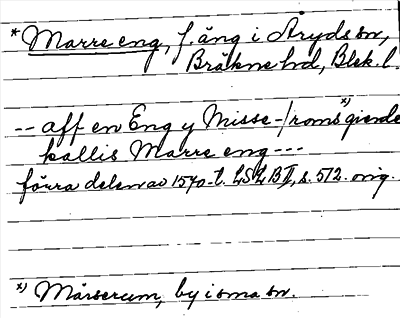 *Marre eng, f. äng i Åryds sn,
Bräkne hd, Blek. l.
-- aff en Eng y Misse-/roms x) gierde
kallis Marre eng ---
förra delen av 1570-t. LSLB II, s. 512. orig.
x) Mörserum, by i sma sn.